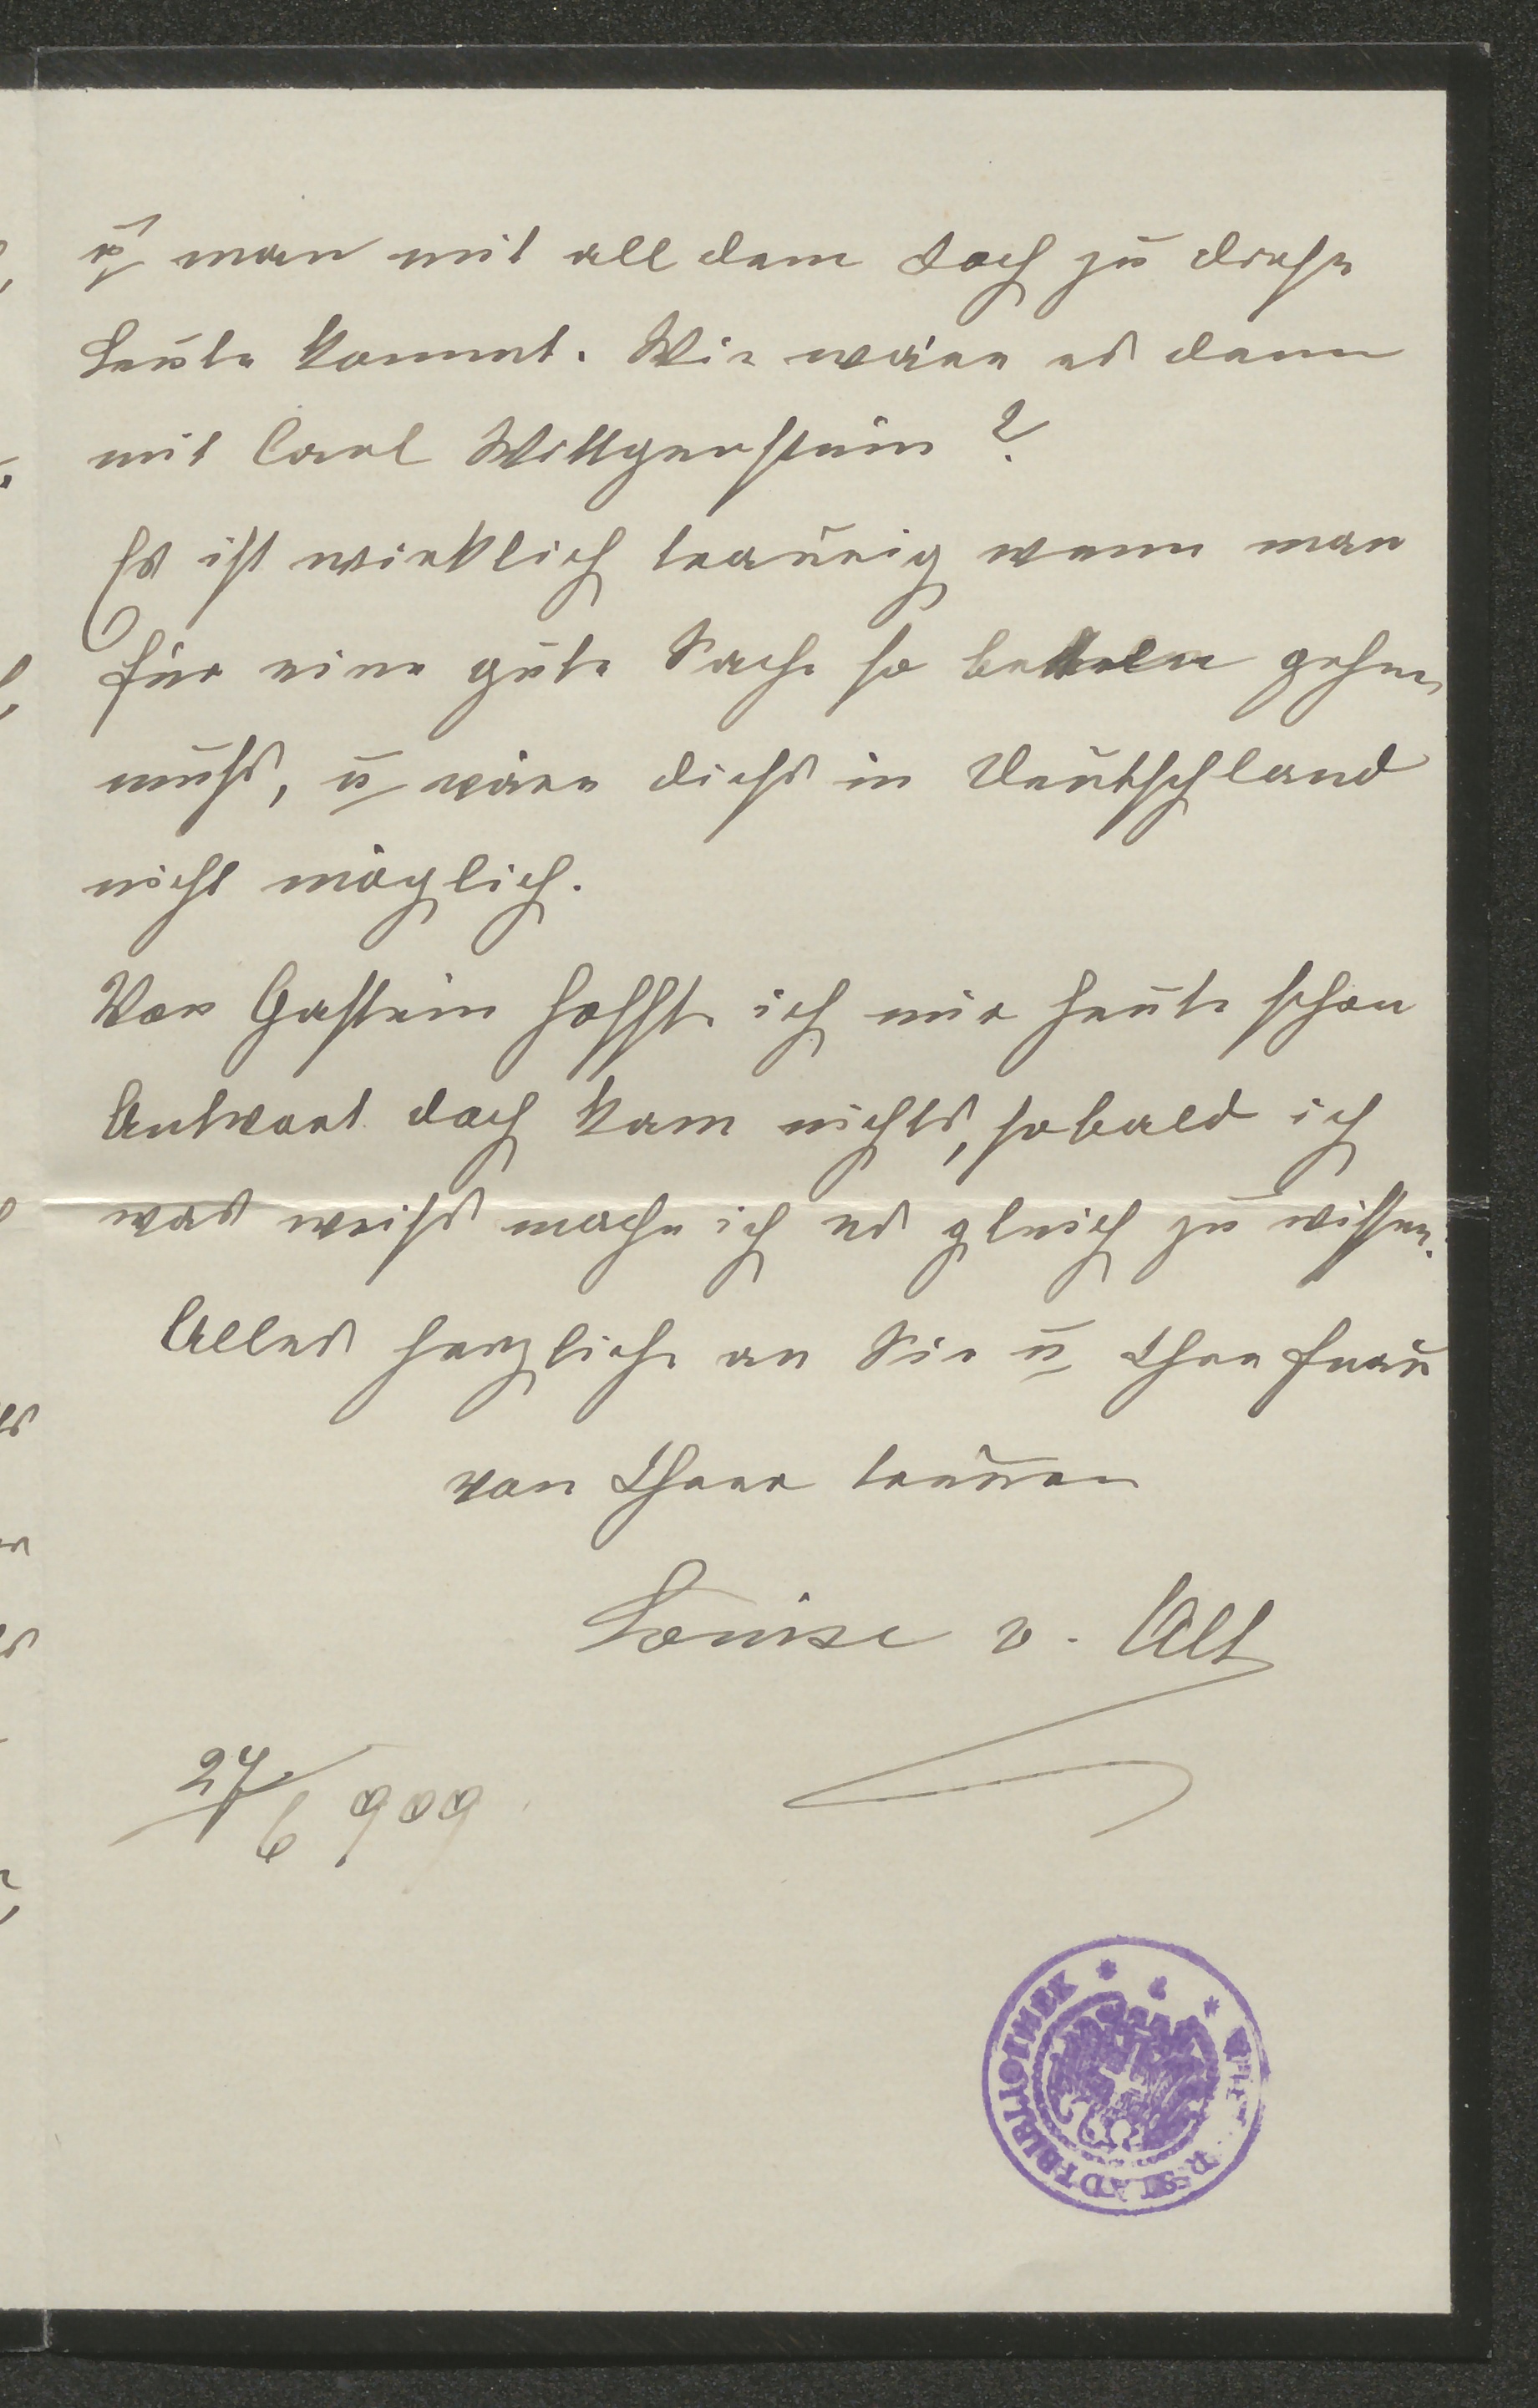 u man mit all dem doch zu diese
Leute kommt. Wie wäre es denn
mit Carl Wittgenstein?
Es ist wirklich traurig wenn man
für eine gute Sache so betteln gehen
muß, u wäre dieß in Deutschland
nicht möglich.
Von Gastein hoffte ich mir heute schon
Antwort doch kam nichts, sobald ich
was weiß mache ich es gleich zu wissen.
Alles herzliche an Sie u Ihre Frau
von Ihrer treuen
Louise v. Alt
24/6 909
WIENER STADTBIBLIOTHEK